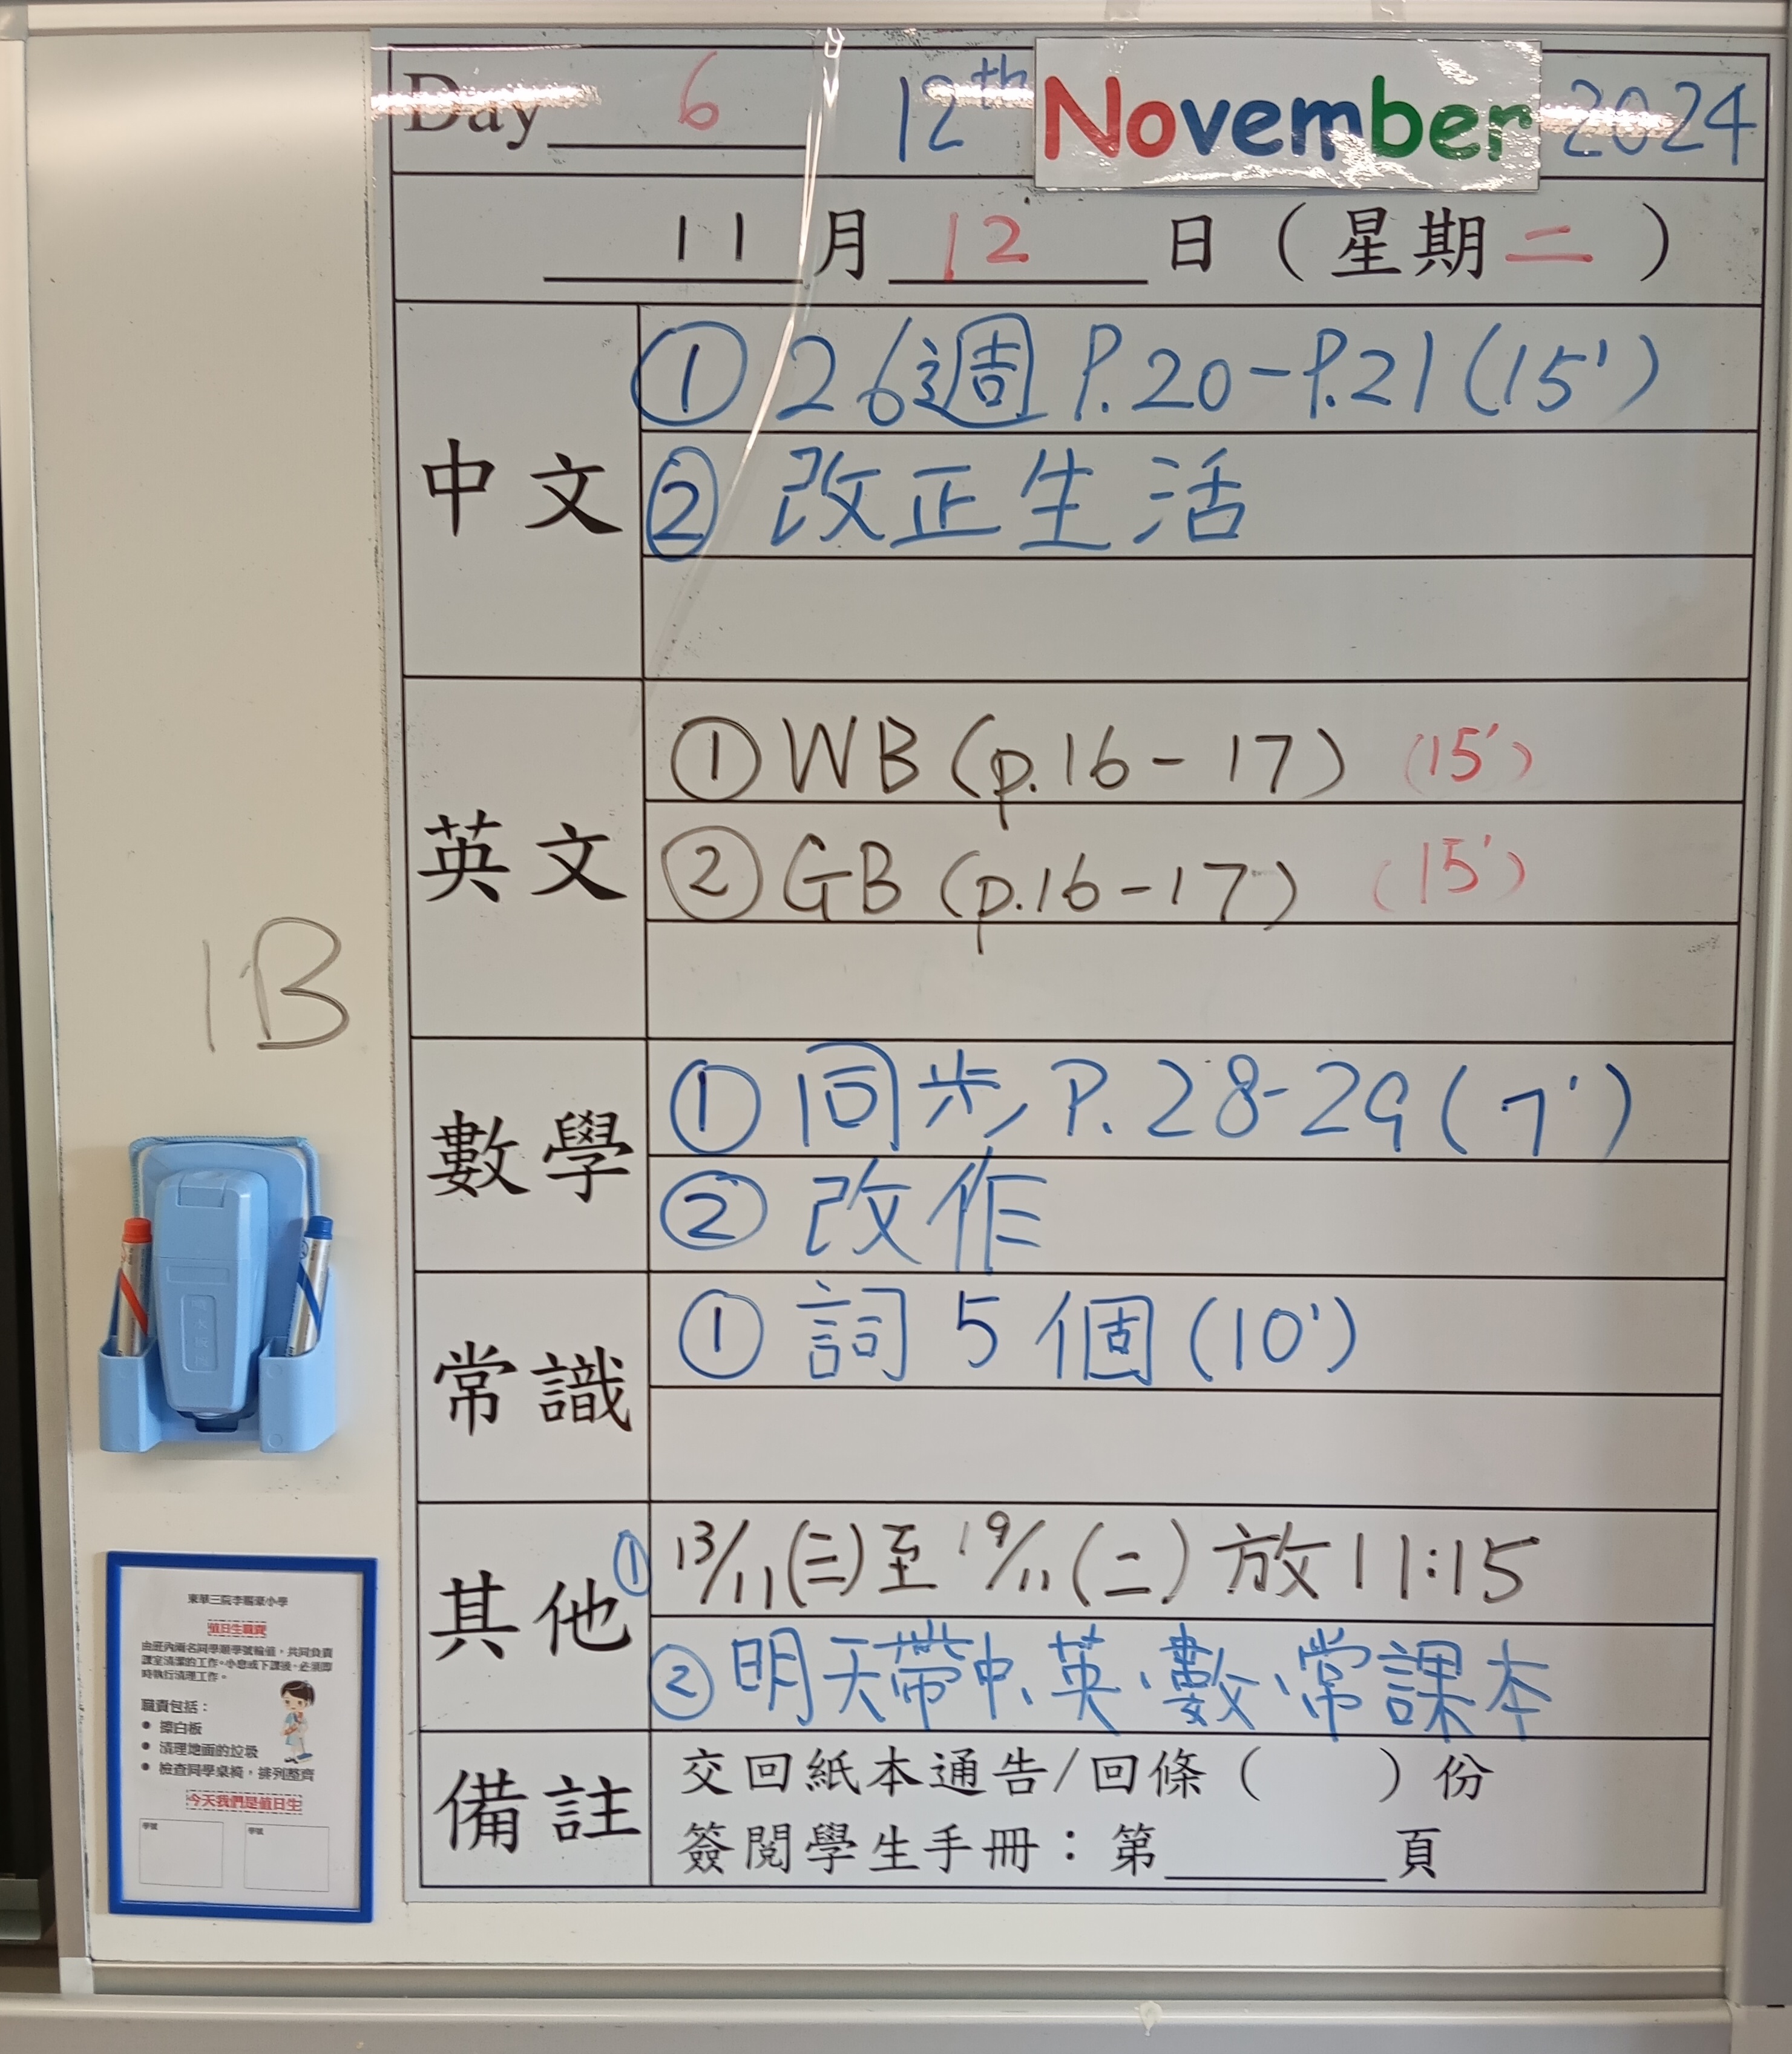 Day 6 12th November 2024
11月12日（星期二）
中文
① 26週 P.20-P.21 (15')
② 改正生活
英文
① WB (p.16-17) (15')
② GB (p.16-17) (15')
1B
數學
① 同步 P.28-29 (7')
② 改作
常識
① 詞5個 (10')
其他
① 13/11(三)至19/11(二)放11:15
② 明天帶中、英、數、常課本
備註
交回紙本通告/回條（　　）份
簽閱學生手冊：第______頁
東華三院李賜豪小學
值日生職責
由班內兩名同學順學號輪值，共同負責
課室清潔的工作。小息或下課後，必須即
時執行清理工作。
職責包括：
● 擦白板
● 清理地面的垃圾
● 檢查同學桌椅，排列整齊
今天我們是值日生
學號 學號